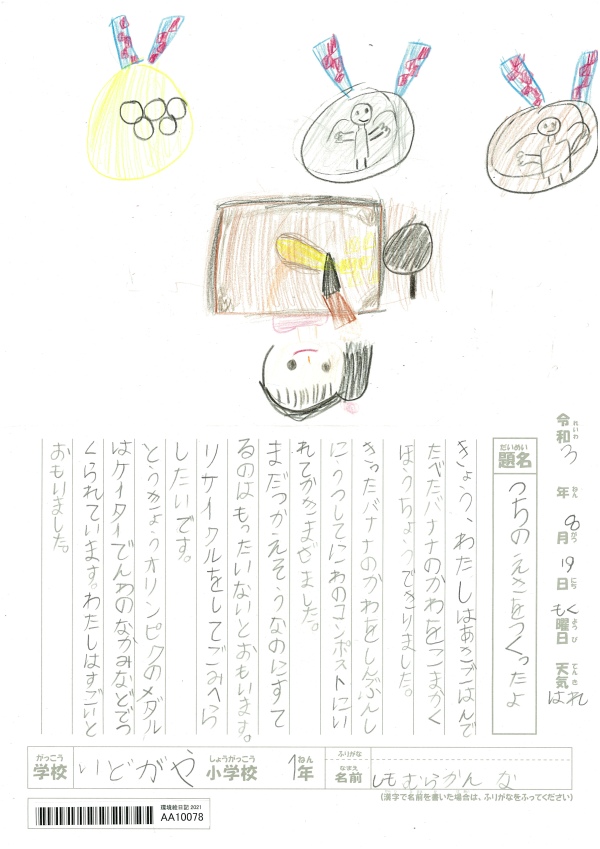 令和3年8月19日もく曜日 天気はれ
れいわ ねん がつ にち ようび てんき
だいめい
題名 つちのえさをつくったよ
きょう、わたしはあさごはんで
たべたバナナのかわをこまかく
ほうちょうできりました。
きったバナナのかわをしんぶんし
にうつしてにわのコンポストにい
れてかきまぜました。
まだつかえそうなのにすて
るのはもったいないとおもいます。
リサイクルをしてごみへら
したいです。
とうきょうオリンピクのメダル
はケイタイでんわのなかみなどでつ
くられています。わたしはすごいと
おもいました。
がっこう しょうがっこう ねん
学校 いどがや 小学校 1年
ふりがな
なまえ
名前 しもむらかんな
(漢字で名前を書いた場合は、ふりがなをふってください)
環境絵日記 2021
AA10078